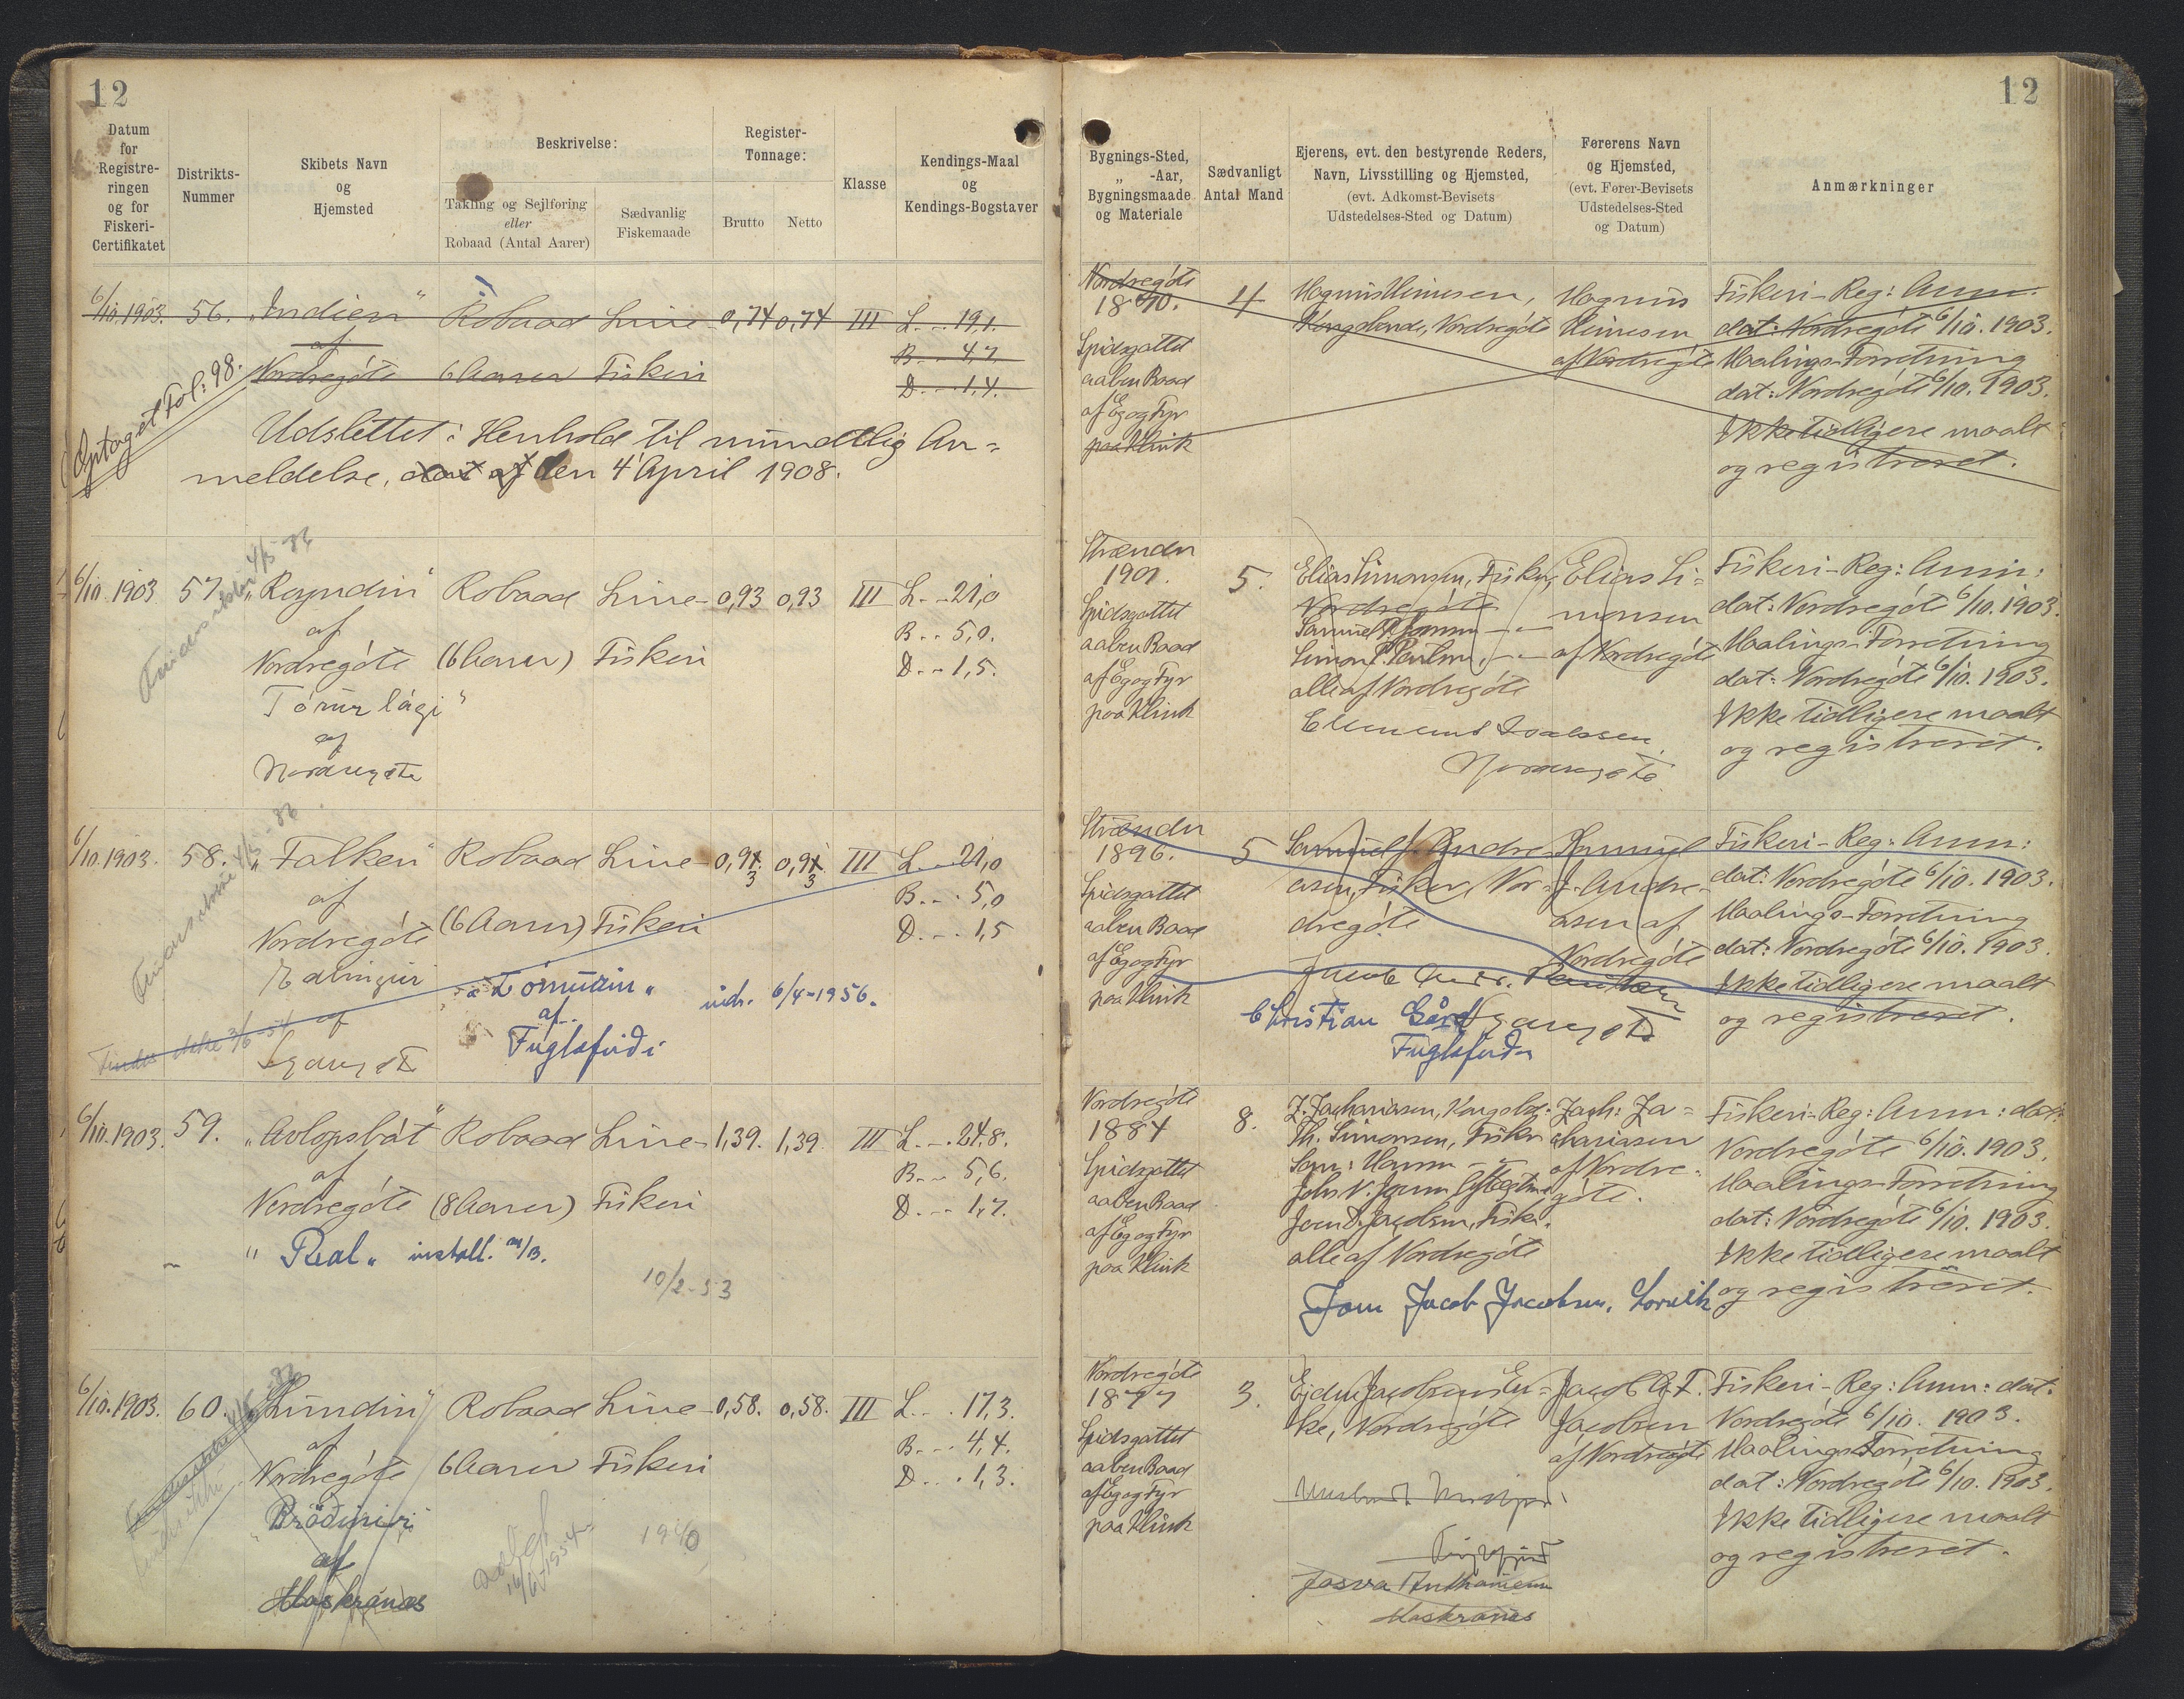 12
Datum
for
Registre-
ringen
og for
Fiskeri-
Certifikatet
Distrikts-
Nummer
Skibets Navn
og
Hjemsted
Beskrivelse:
Takling og Sejlføring
eller
Robaad (Antal Aarer)
Sædvanlig
Fiskemaade
Register-
Tonnage:
Brutto
Netto
Klasse
Kendings-Maal
og
Kendings-Bogstaver
6/10.1903. 56. „Indien“ Robaad Line- 0,74 0,74 III L. - . 19,1.
af B - - 4,7
Nordregøte 6 Aarer Fiskeri D. - . 1,4.
Optaget Fol: 98.
Udslettet i Henhold til mundtlig An-
meldelse, den 4 April 1908.
6/10.1903 57. „Royndin“ Robaad Line- 0,93 0,93 III L. - . 21,0
af B. . 5,0.
Nordregøte (6 Aarer) Fiskeri D. - . 1,5.
Tórur lági“
af
Nordregøte
6/10.1903. 58. „Falken“ Robaad Line- 0,93 0,93 III L. . . 21,0
af B. - . 5,0
Nordregøte (6 Aarer) Fiskeri D. - . 1,5
af
Finder ikke 3/6-51
af
Fuglafirði
6/4-1956.
6/10.1903. 59. „Avlopsbát“ Robaad Line- 1,39. 1,39. III L. - . 24,8.
af B. - - 5,6.
Nordregøte (8 Aarer) Fiskeri D. - - 1,7.
„ Real „ install.
10/2-53
6/10.1903. 60. „Lundin“ Robaad Line- 0,58. 0,58. III L. . . 17,3.
af B. - - 4,4.
Nordregøte 6 Aarer Fiskeri D. . . 1,3.
af
Maskranæs
16/6-1954
1940
12
Bygnings-Sted,
„ -Aar,
Bygningsmaade
og Materiale
Sædvanligt
Antal Mand
Ejerens, evt. den bestyrende Reders,
Navn, Livsstilling og Hjemsted,
(evt. Adkomst-Bevisets
Udstedelses-Sted og Datum)
Førerens Navn
og Hjemsted,
(evt. Fører-Bevisets
Udstedelses-Sted
og Datum)
Anmærkninger
Nordregøte
1890.
Spidsgattet
aaben Baad
af Eg og Fyr
paa Klink
4
Magnus Himesen,
Kongsbonde, Nordregøte
Magnus
Himesen
af Nordregøte
Fiskeri-Reg: Anm.
dat: Nordregøte 6/10.1903.
Maalings-Forretning
dat: Nordregøte 6/10.1903.
Ikke tidligere maalt
og registreret.
Strænder
1901.
Spidsgattet
aaben Baad
af Eg og Fyr
paa Klink
5.
Elias Simonsen, Fisker,
Nordregøte
Simon P. Poulsen, - „ -
alle af Nordregøte
Nordregøte
Elias Si-
monsen
af Nordregøte
Fiskeri-Reg: Anm:
dat: Nordregøte 6/10.1903.
Maalings-Forretning
dat: Nordregøte 6/10.1903.
Ikke tidligere maalt
og registreret.
Strænder
1896.
Spidsgattet
aaben Baad
af Eg og Fyr
paa Klink
5
Samuel J. Andre-
asen, Fisker, Nor-
dregøte
Christian
Samuel
J. Andre-
asen af
Nordregøte
Fiskeri-Reg: Anm:
dat: Nordregøte 6/10.1903.
Maalings-Forretning
dat: Nordregøte 6/10.1903.
Ikke tidligere maalt
og registreret.
Nordregøte
1884
Spidsgattet
aaben Baad
af Eg og Fyr
paa Klink
8.
J. Zachariasen, Kongsbd:
Th. Simonsen, Fisker
Sam: Hansen - „ -
Joen D. Jacobsen, Fisk.
alle af Nordregøte
Jacob Jacobsen, Lorvik
Zach: Za-
chariasen
af Nordre-
gøte.
Fiskeri-Reg: Anm: dat:
Nordregøte 6/10.1903.
Maalings-Forretning
dat: Nordregøte 6/10.1903.
Ikke tidligere maalt
og registreret.
Nordregøte
1877
Spidsgattet
aaben Baad
af Eg og Fyr
paa Klink
3.
Ejder Jacobsens En-
ke, Nordregøte
Maskranæs
Jacobsen
af Nordregøte
Fiskeri-Reg: Anm: dat.
Nordregøte 6/10. 1903.
Maalings-Forretning
dat: Nordregøte 6/10.1903.
Ikke tidligere maalt
og registreret.